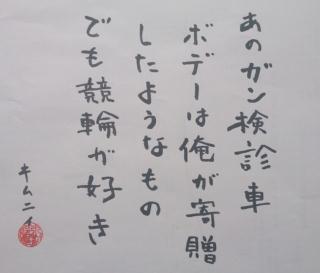 あのガン検診車
ボデーは俺が寄贈
したようなもの
でも競輪が好き
キムニイ